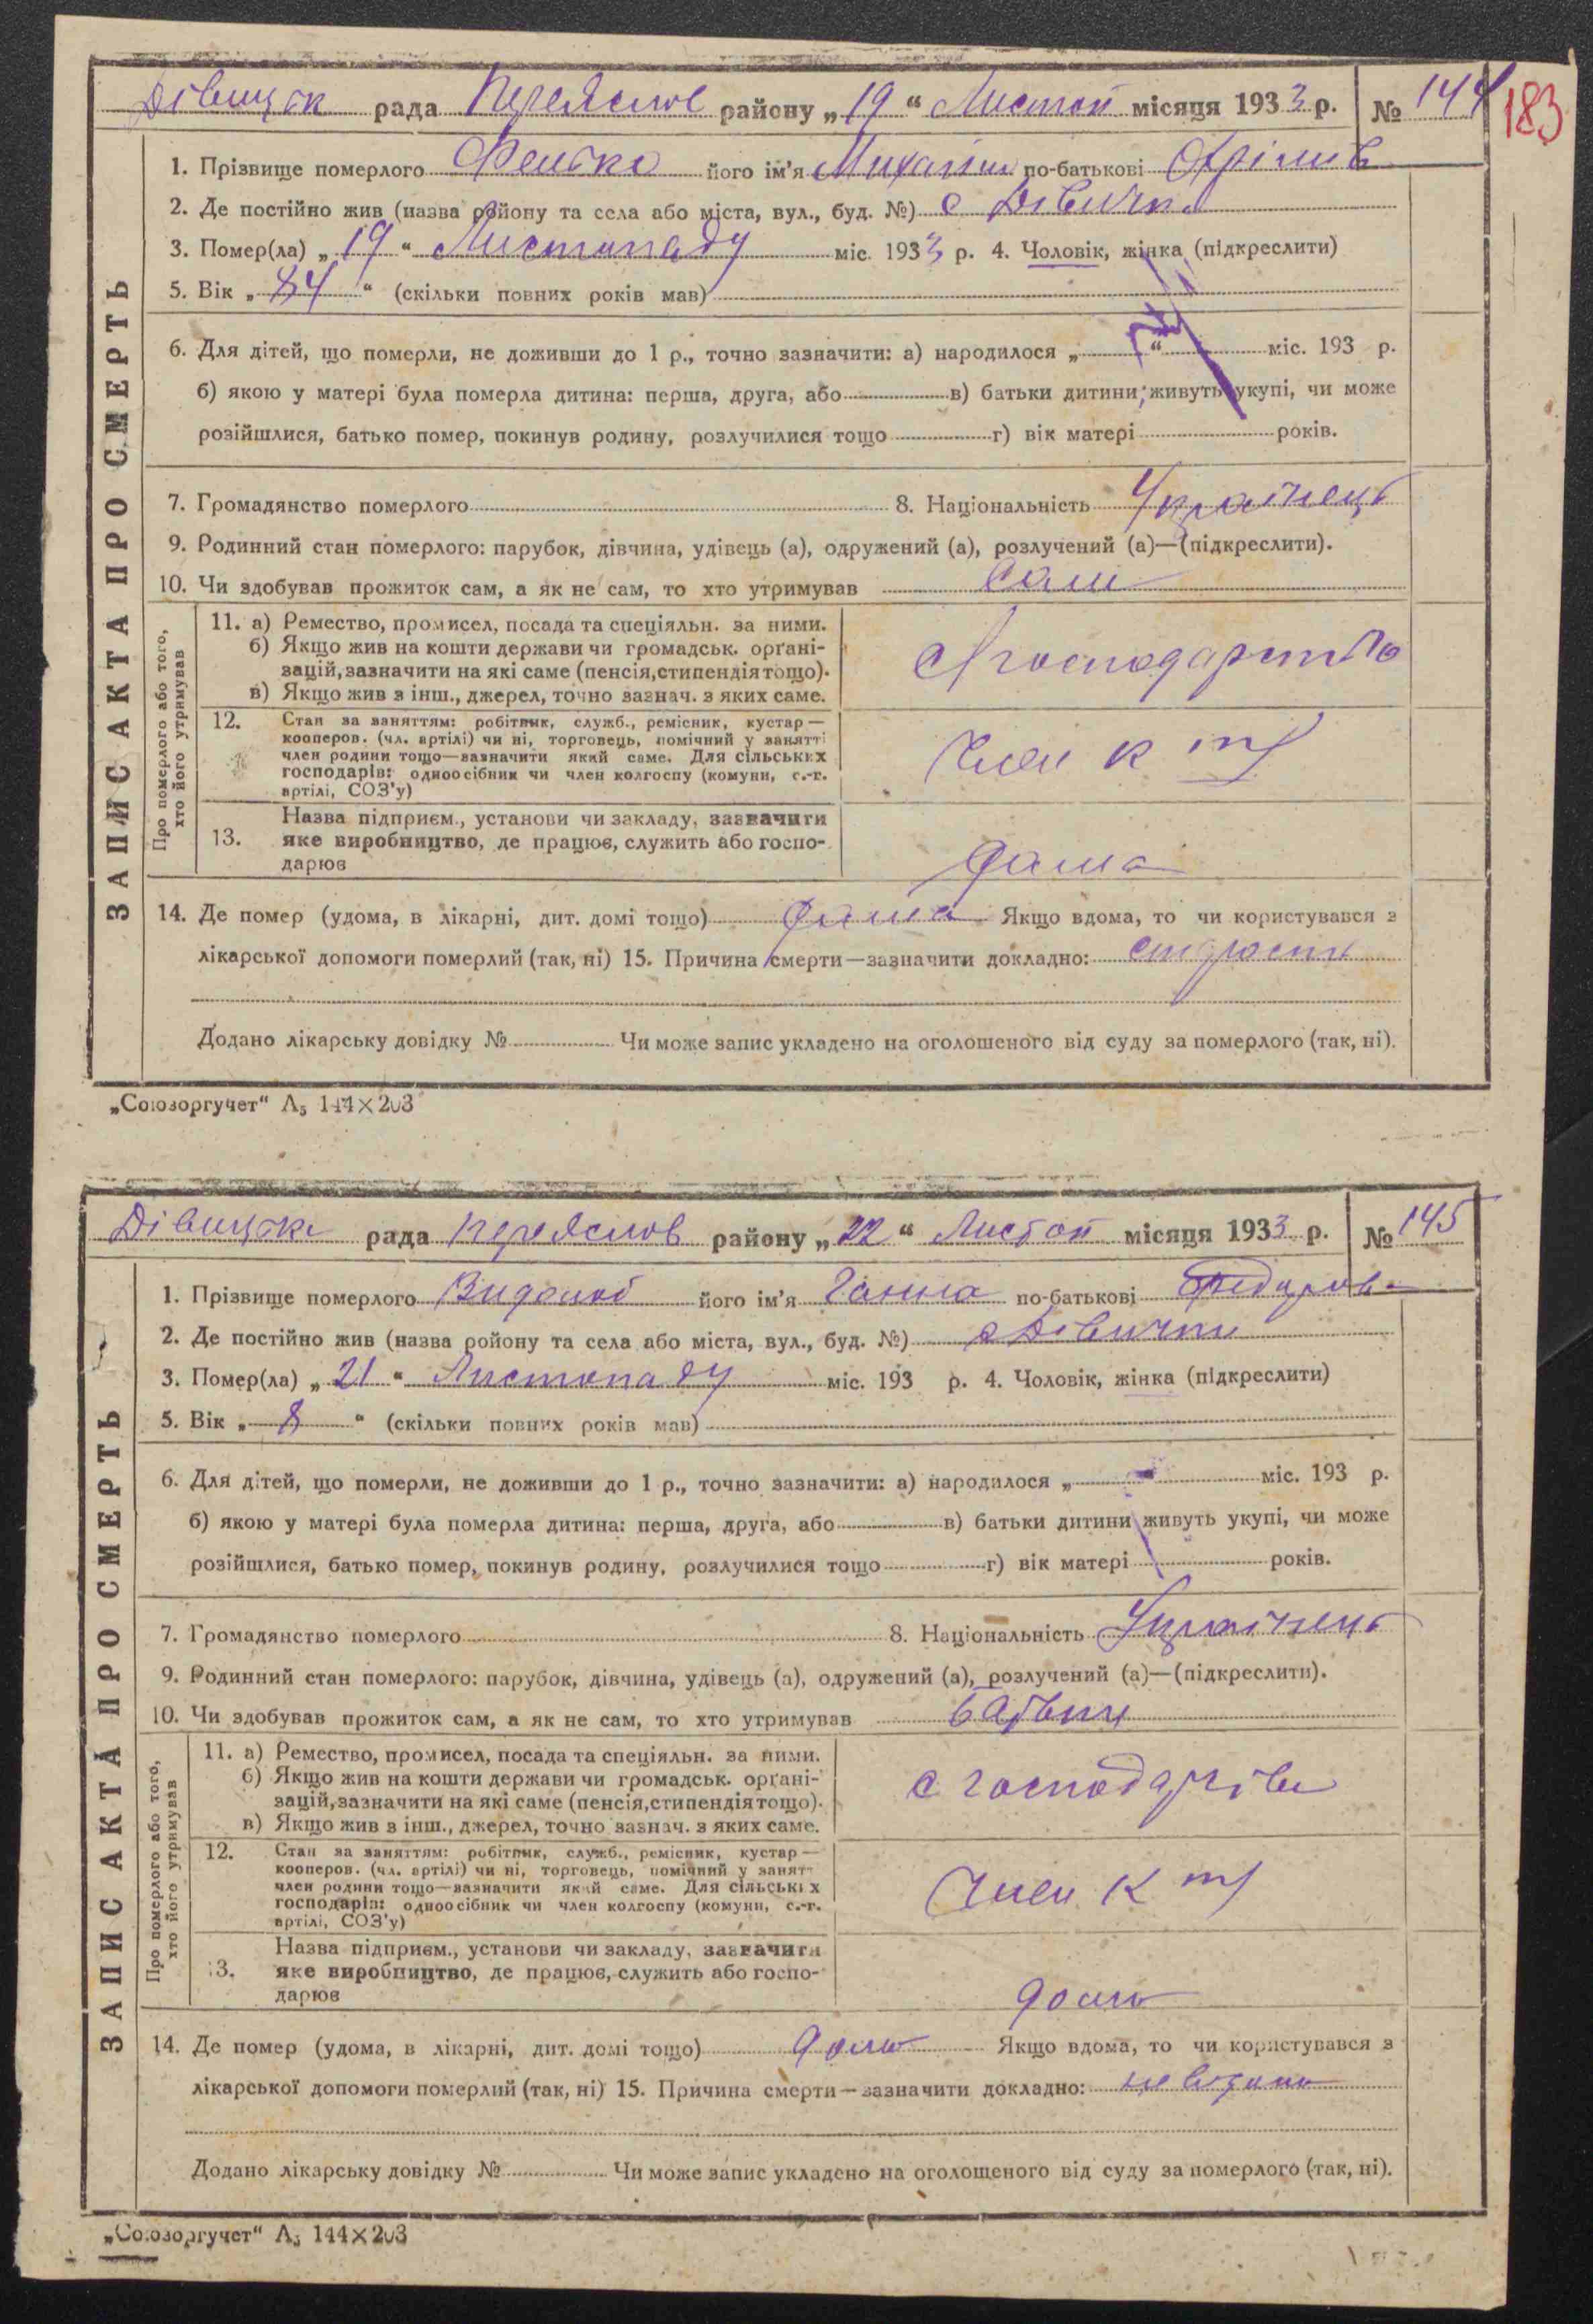 Дівицьк рада Переяслов району „19“ Листоп місяця 1933 р. № 144
183
1. Прізвище померлого його ім'я Михайло по-батькові
2. Де постійно жив (назва ройону та села або міста, вул., буд. №) с Дівички
3. Помер(ла) „19“ Листопаду міс. 1933 р. 4. Чоловік, жінка (підкреслити)
5. Вік „84“ (скільки повних років мав)
6. Для дітей, що померли, не доживши до 1 р., точно зазначити: а) народилося „ “ міс. 193 р.
б) якою у матері була померла дитина: перша, друга, або в) батьки дитини живуть укупі, чи може
розійшлися, батько помер, покинув родину, розлучилися тощо г) вік матері років.
7. Громадянство померлого 8. Національність Українець
9. Родинний стан померлого: парубок, дівчина, удівець (а), одружений (а), розлучений (а)—(підкреслити).
10. Чи здобував прожиток сам, а як не сам, то хто утримував сам
ЗАПИС АКТА ПРО СМЕРТЬ
Про померлого або того,
хто його утримував
11. а) Ремество, промисел, посада та спеціяльн. за ними.
б) Якщо жив на кошти держави чи громадськ. орґані-
зацій, зазначити на які саме (пенсія, стипендія тощо).
в) Якщо жив з інш., джерел, точно зазнач. з яких саме.
с господарство
12. Стан за заняттям: робітник, служб., ремісник, кустар—
кооперов. (чл. артілі) чи ні, торговець, помічний у занятті
член родини тощо—зазначити який саме. Для сільських
господарів: одноосібник чи член колгоспу (комуни, с.-г.
артілі, СОЗ'у)
член к
13. Назва підприєм., установи чи закладу, зазначити
яке виробництво, де працює, служить або госпо-
дарює
дома
14. Де помер (удома, в лікарні, дит. домі тощо) дома Якщо вдома, то чи користувався з
лікарської допомоги померлий (так, ні) 15. Причина смерти—зазначити докладно: старости
Додано лікарську довідку № Чи може запис укладено на оголошеного від суду за померлого (так, ні).
„Союзоргучет“ А₅ 144×203
Дівицьк рада Переяслов району „22“ Листоп місяця 1933 р. № 145
1. Прізвище померлого його ім'я Ганна по-батькові Федоров
2. Де постійно жив (назва ройону та села або міста, вул., буд. №) с Дівички
3. Помер(ла) „21“ Листопаду міс. 193 р. 4. Чоловік, жінка (підкреслити)
5. Вік „8“ (скільки повних років мав)
6. Для дітей, що померли, не доживши до 1 р., точно зазначити: а) народилося „ “ міс. 193 р.
б) якою у матері була померла дитина: перша, друга, або в) батьки дитини живуть укупі, чи може
розійшлися, батько помер, покинув родину, розлучилися тощо г) вік матері років.
7. Громадянство померлого 8. Національність Українець
9. Родинний стан померлого: парубок, дівчина, удівець (а), одружений (а), розлучений (а)—(підкреслити).
10. Чи здобував прожиток сам, а як не сам, то хто утримував батьки
ЗАПИС АКТА ПРО СМЕРТЬ
Про померлого або того,
хто його утримував
11. а) Ремество, промисел, посада та спеціяльн. за ними.
б) Якщо жив на кошти держави чи громадськ. орґані-
зацій, зазначити на які саме (пенсія, стипендія тощо).
в) Якщо жив з інш., джерел, точно зазнач. з яких саме.
12. Стан за заняттям: робітник, служб., ремісник, кустар—
кооперов. (чл. артілі) чи ні, торговець, помічний у занят
член родини тощо—зазначити який саме. Для сільських
господарів: одноосібник чи член колгоспу (комуни, с.-г.
артілі, СОЗ'у)
член к
13. Назва підприєм., установи чи закладу, зазначити
яке виробництво, де працює, служить або госпо-
дарює
дома
14. Де помер (удома, в лікарні, дит. домі тощо) дома Якщо вдома, то чи користувався з
лікарської допомоги померлий (так, ні) 15. Причина смерти—зазначити докладно: невідомо
Додано лікарську довідку № Чи може запис укладено на оголошеного від суду за померлого (так, ні).
„Союзоргучет“ А₅ 144×203